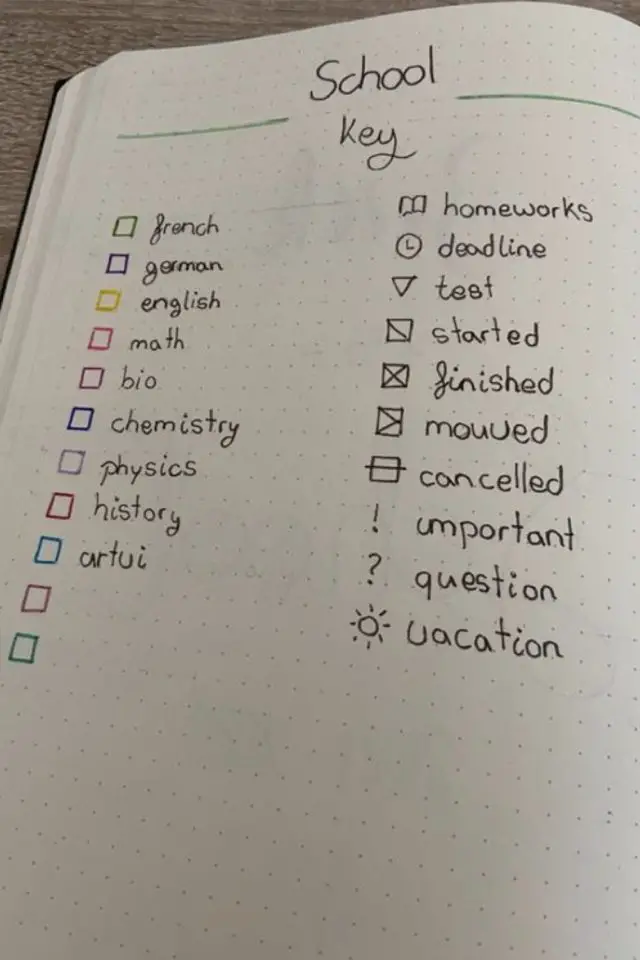 School
Key
french
german
english
math
bio
chemistry
physics
history
artui
homeworks
deadline
test
started
finished
mouved
cancelled
! important
? question
vacation